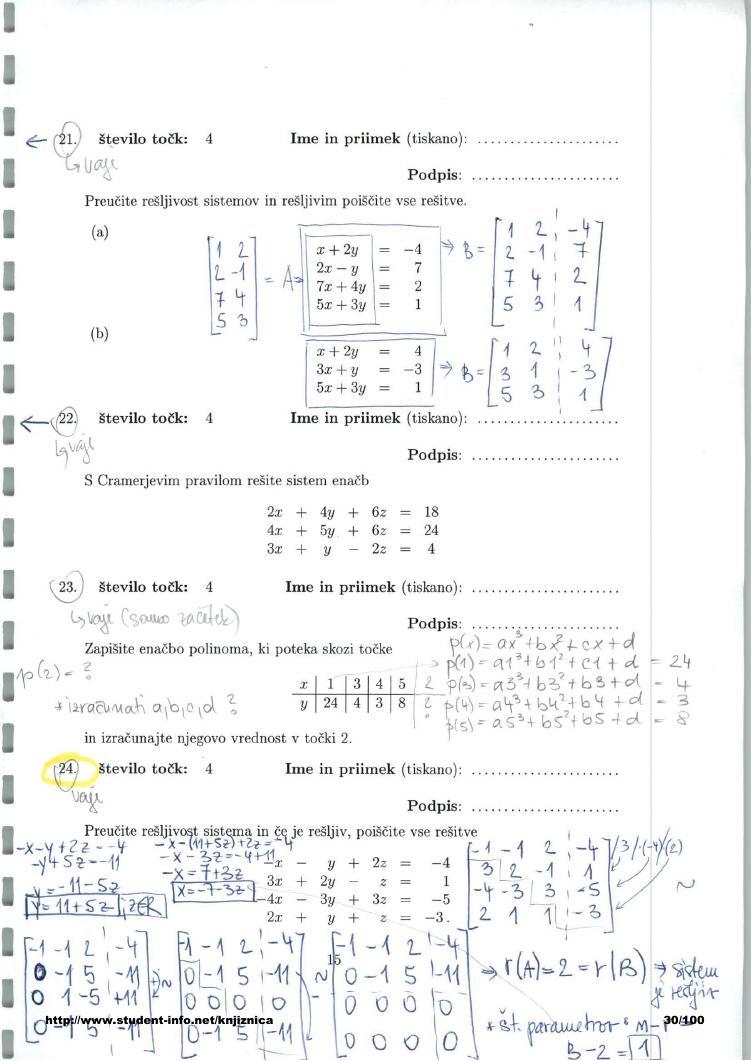 ← 21. število točk: 4 Ime in priimek (tiskano): ......................
↳ vaje
Podpis: ......................
Preučite rešljivost sistemov in rešljivim poiščite vse rešitve.
(a)
[1 2
2 -1
7 4
5 3] = A →
x + 2y = −4
2x − y = 7
7x + 4y = 2
5x + 3y = 1
→ B = [1 2 | -4
2 -1 | 7
7 4 | 2
5 3 | 1]
(b)
x + 2y = 4
3x + y = −3
5x + 3y = 1
→ B = [1 2 | 4
3 1 | -3
5 3 | 1]
← 22. število točk: 4 Ime in priimek (tiskano): ......................
↳ vaje
Podpis: ......................
S Cramerjevim pravilom rešite sistem enačb
2x + 4y + 6z = 18
4x + 5y + 6z = 24
3x + y − 2z = 4
23. število točk: 4 Ime in priimek (tiskano): ......................
↳ vaje (samo začetek)
Podpis: ......................
Zapišite enačbo polinoma, ki poteka skozi točke
p(x) = ax³+bx²+cx+d
p(1) = a1³+b1²+c1+d = 24
p(3) = a3³+b3²+b3+d = 4
p(4) = a4³+b4²+b4+d = 3
p(5) = a5³+b5²+b5+d = 8
p(2) = ?
* izračunati a,b,c,d ?
x | 1 | 3 | 4 | 5 | 2
y | 24 | 4 | 3 | 8 | ?
in izračunajte njegovo vrednost v točki 2.
24. število točk: 4 Ime in priimek (tiskano): ......................
vaje
Podpis: ......................
Preučite rešljivost sistema in če je rešljiv, poiščite vse rešitve
-x-y+2z=-4
-y+5z=-11
y=-11-5z
y=11+5z, z∈R
-x-(11+5z)+2z=-4
-x-3z=-4+11
-x=7+3z
x=-7-3z
−x − y + 2z = −4
3x + 2y − z = 1
−4x − 3y + 3z = −5
2x + y + z = −3.
[-1 -1 2 | -4
3 2 -1 | 1
-4 -3 3 | -5
2 1 1 | -3] /3 /·(-4) /(2) ~
[-1 -1 2 | -4
0 -1 5 | -11
0 1 -5 | +11
0 -1 5 | -11] ~
[-1 -1 2 | -4
0 -1 5 | -11
0 0 0 | 0
0 -1 5 | -11] ~
[-1 -1 2 | -4
0 -1 5 | -11
0 0 0 | 0
0 0 0 | 0]
⇒ r(A) = 2 = r(B) ⇒ sistem
je rešljiv
* št. parametrov:
3-2 = 1
15
http://www.student-info.net/knjiznica
30/100